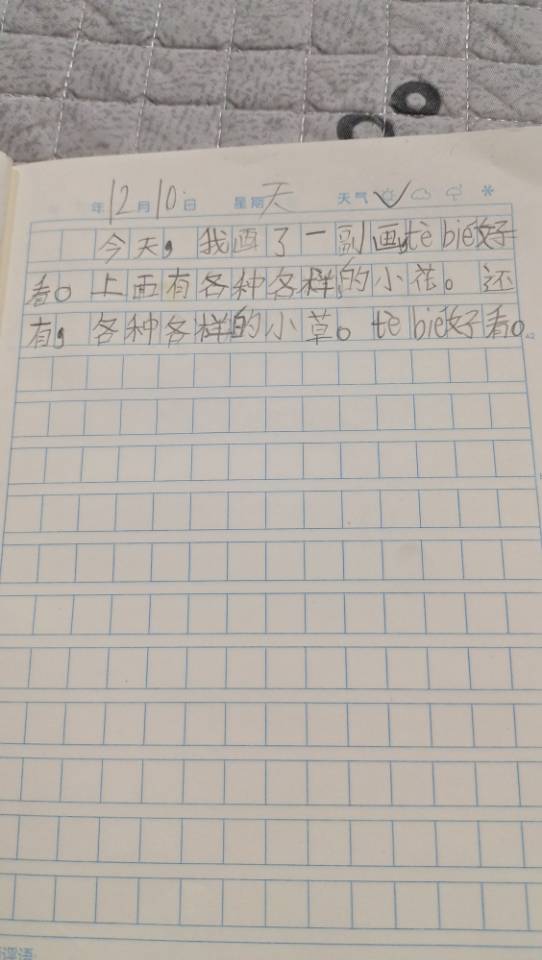 年12月10日 星期天 天气
今天，我画了一副画，tè bié好
看。上面有各种各样的小花。还
有，各种各样的小草。tè bié好看。
评语